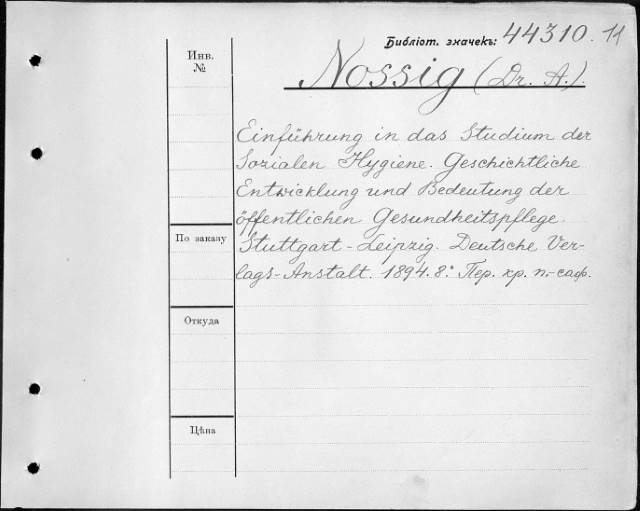 Библіот. значекъ: 44310. 11
Инв.
№
Nossig (Dr. A.).
Einführung in das Studium der
Sozialen Hygiene. Geschichtliche
Entwicklung und Bedeutung der
öffentlichen Gesundheitspflege.
По заказу
Stuttgart-Leipzig. Deutsche Ver-
lags-Anstalt. 1894. 8º. Пер. хр. п.-саф.
Откуда
Цѣна